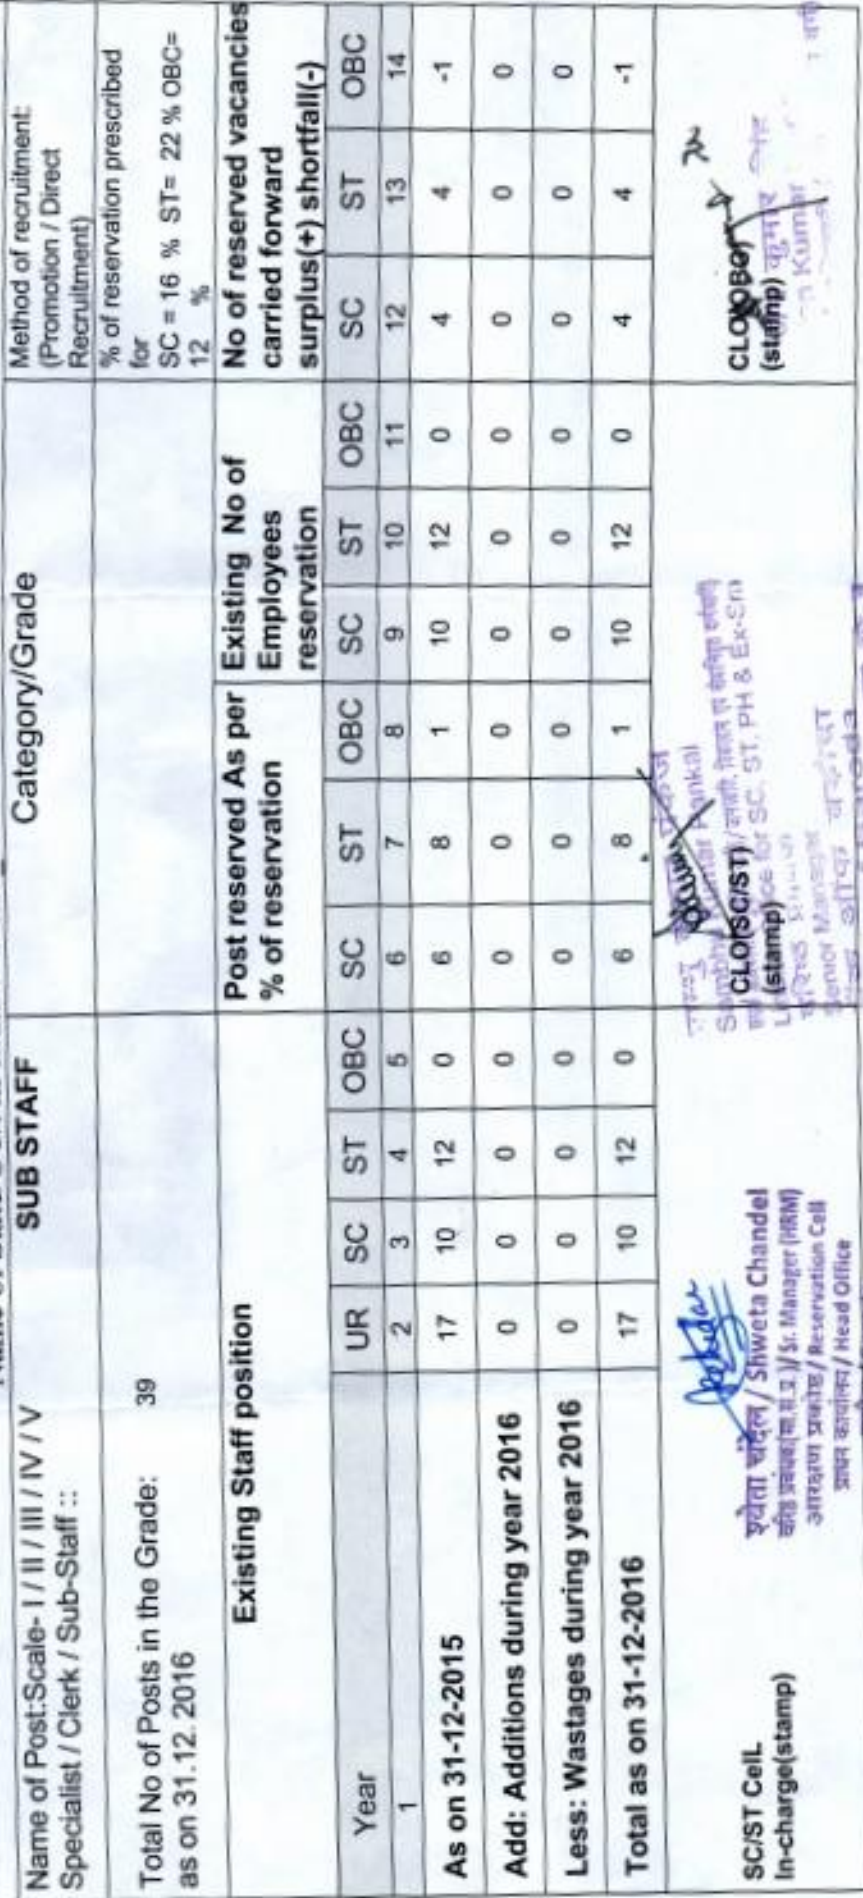 Name of Post:Scale- I / II / III / IV / V
Specialist / Clerk / Sub-Staff ::
SUB STAFF
Category/Grade
Method of recruitment:
(Promotion / Direct
Recruitment)
Total No of Posts in the Grade: 39
as on 31.12. 2016
% of reservation prescribed
for
SC = 16 % ST= 22 % OBC=
12 %
Existing Staff position
Post reserved As per
% of reservation
Existing No of
Employees
reservation
No of reserved vacancies
carried forward
surplus(+) shortfall(-)
Year UR SC ST OBC SC ST OBC SC ST OBC SC ST OBC
1 2 3 4 5 6 7 8 9 10 11 12 13 14
As on 31-12-2015 17 10 12 0 6 8 1 10 12 0 4 4 -1
Add: Additions during year 2016 0 0 0 0 0 0 0 0 0 0 0 0 0
Less: Wastages during year 2016 0 0 0 0 0 0 0 0 0 0 0 0 0
Total as on 31-12-2016 17 10 12 0 6 8 1 10 12 0 4 4 -1
SC/ST CelL
In-charge(stamp)
श्वेता चंदेल / Shweta Chandel
/ Sr. Manager (HRM)
आरक्षण प्रकोष्ठ / Reservation Cell
प्रधान कार्यालय / Head Office
CLO(SC/ST)
(stamp)
for SC, ST, PH & Ex-Sm
Senior Manager
CLO(OBC)
(stamp)
कुमार
Kumar